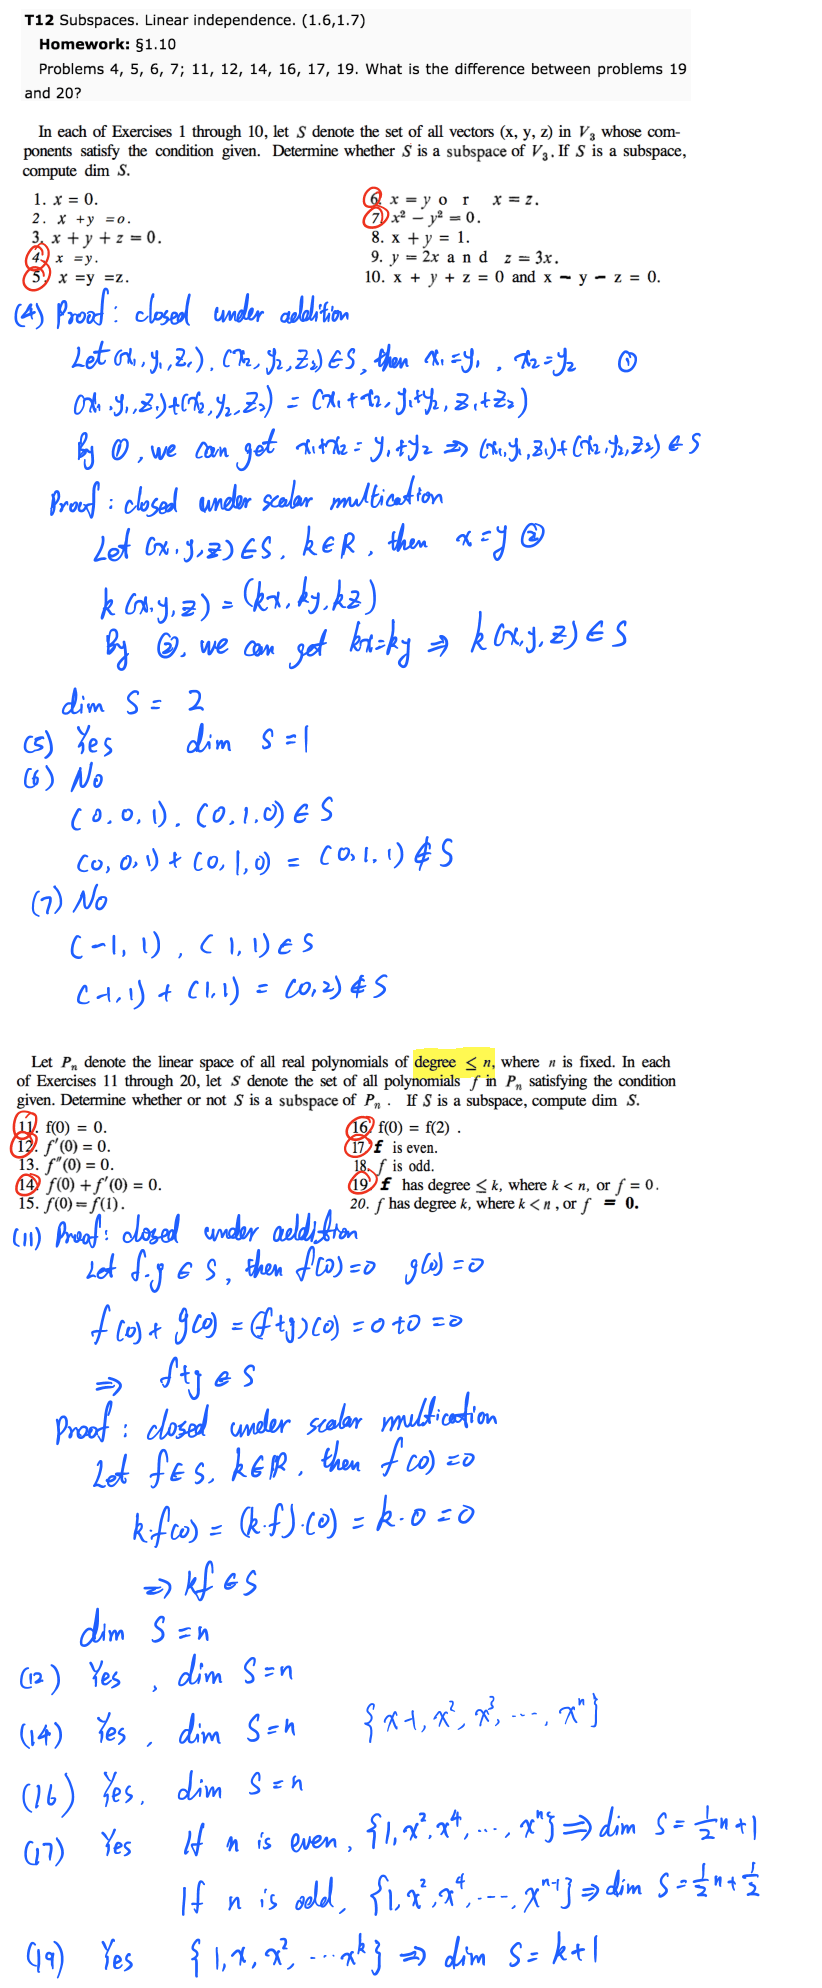 T12 Subspaces. Linear independence. (1.6,1.7)
Homework: §1.10
Problems 4, 5, 6, 7; 11, 12, 14, 16, 17, 19. What is the difference between problems 19
and 20?
In each of Exercises 1 through 10, let S denote the set of all vectors (x, y, z) in V₃ whose com-
ponents satisfy the condition given. Determine whether S is a subspace of V₃. If S is a subspace,
compute dim S.
1. x = 0.
2. x + y = o.
3. x + y + z = 0.
4. x = y.
5. x = y = z.
6. x = y o r x = z.
7. x² − y² = 0.
8. x + y = 1.
9. y = 2x a n d z = 3x.
10. x + y + z = 0 and x − y − z = 0.
(4) Proof : closed under addition
Let (x₁, y₁, z₁), (x₂, y₂, z₂) ∈ S, then x₁ = y₁, x₂ = y₂ ①
(x₁, y₁, z₁)+(x₂, y₂, z₂) = (x₁+x₂, y₁+y₂, z₁+z₂)
By ①, we can get x₁+x₂ = y₁+y₂ ⇒ (x₁, y₁, z₁)+(x₂, y₂, z₂) ∈ S
Proof : closed under scalar multication
Let (x, y, z) ∈ S, k ∈ R, then x = y ②
k (x, y, z) = (kx, ky, kz)
By ②, we can get kx=ky ⇒ k(x, y, z) ∈ S
dim S = 2
(5) Yes dim S = 1
(6) No
(0, 0, 1), (0, 1, 0) ∈ S
(0, 0, 1) + (0, 1, 0) = (0, 1, 1) ∉ S
(7) No
(−1, 1), (1, 1) ∈ S
(−1, 1) + (1, 1) = (0, 2) ∉ S
Let Pₙ denote the linear space of all real polynomials of degree ≤ n, where n is fixed. In each
of Exercises 11 through 20, let S denote the set of all polynomials f in Pₙ satisfying the condition
given. Determine whether or not S is a subspace of Pₙ . If S is a subspace, compute dim S.
11. f(0) = 0.
12. f′(0) = 0.
13. f″(0) = 0.
14. f(0) + f′(0) = 0.
15. f(0) = f(1).
16. f(0) = f(2) .
17. f is even.
18. f is odd.
19. f has degree ≤ k, where k < n, or f = 0.
20. f has degree k, where k < n , or f = 0.
(11) Proof : closed under addition
Let f, g ∈ S, then f(0)=0 g(0)=0
f(0) + g(0) = (f+g)(0) = 0+0 = 0
⇒ f+g ∈ S
Proof : closed under scalar multication
Let f ∈ S, k ∈ R, then f(0) = 0
k·f(0) = (k·f)·(0) = k·0 = 0
⇒ kf ∈ S
dim S = n
(12) Yes , dim S = n
(14) Yes , dim S = n {x−1, x², x³, ···, xⁿ}
(16) Yes, dim S = n
(17) Yes If n is even, {1, x², x⁴, ···, xⁿ} ⇒ dim S = ½n+1
If n is odd, {1, x², x⁴, ···, xⁿ⁻¹} ⇒ dim S = ½n+½
(19) Yes {1, x, x², ···xᵏ} ⇒ dim S = k+1